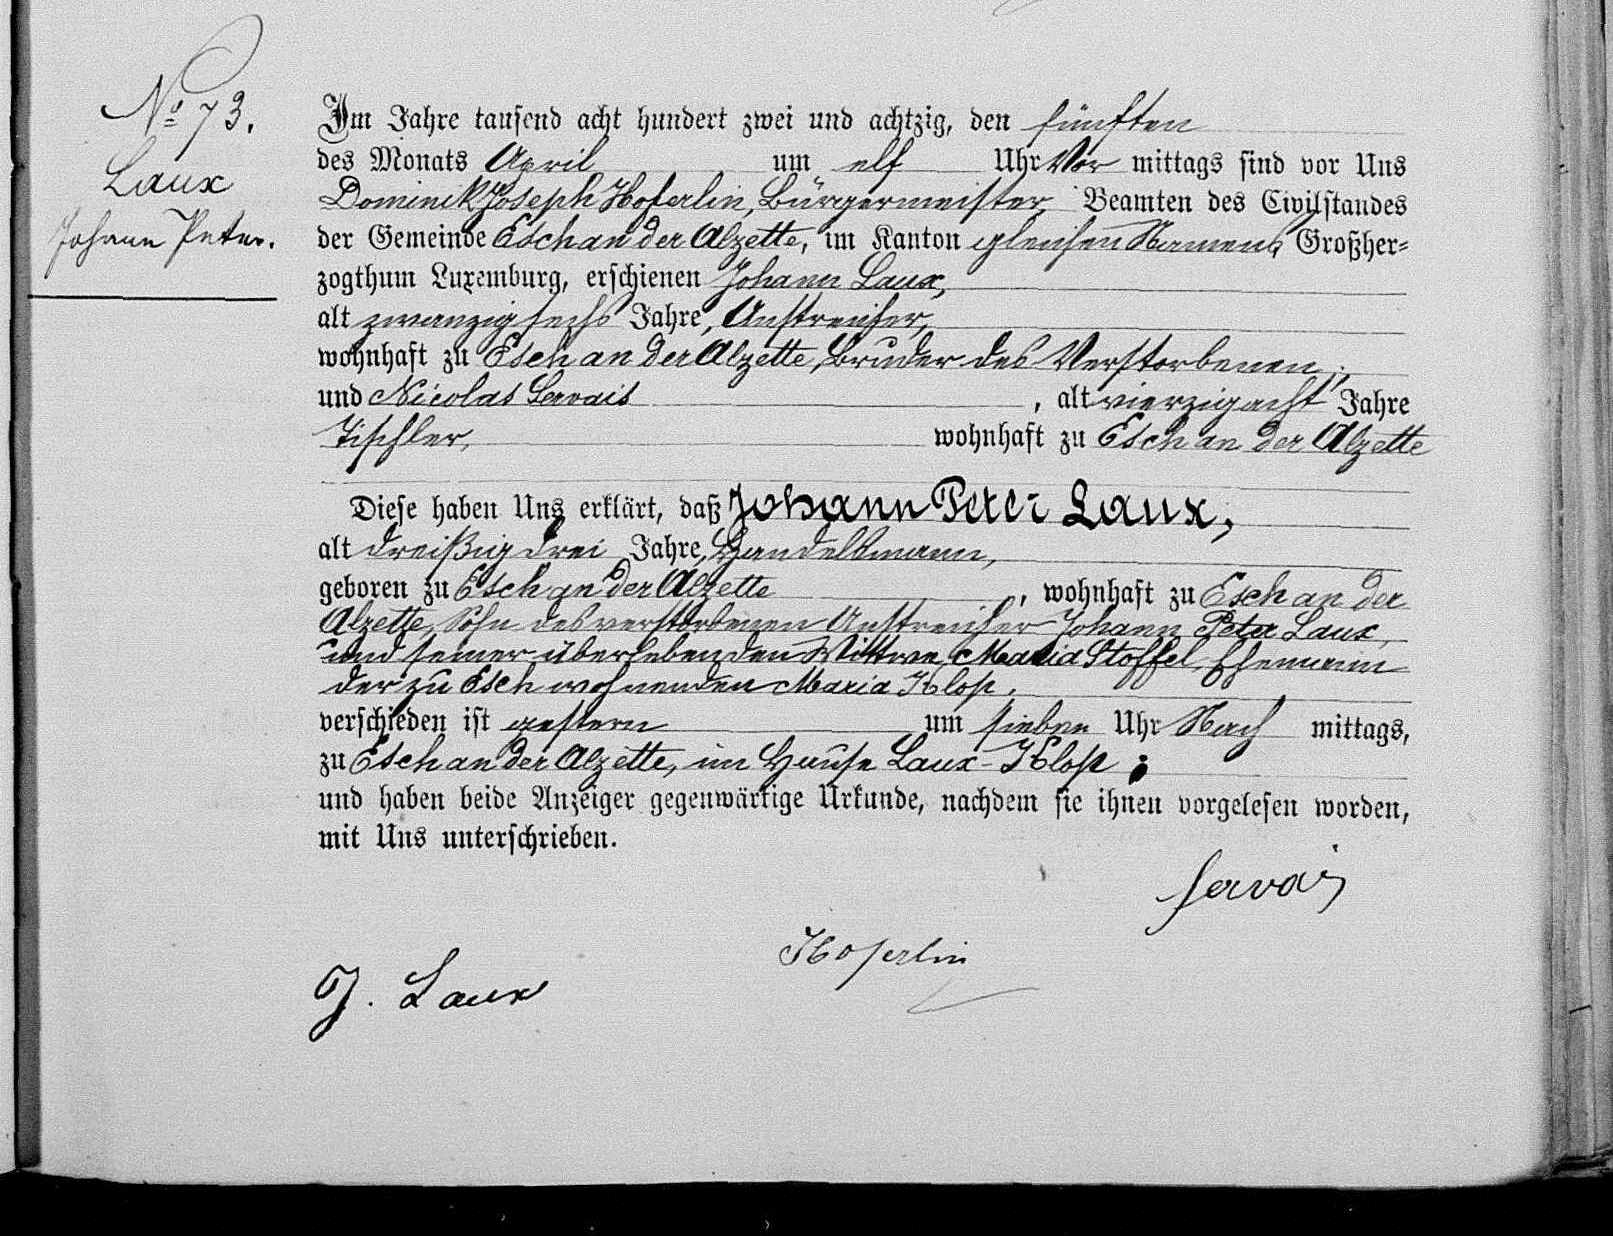 No 73.
Laux
Johann Peter.
Im Jahre tausend acht hundert zwei und achtzig, den fünften
des Monats April um elf Uhr Vor mittags sind vor Uns
Dominik Joseph Hoferlin, Bürgermeister, Beamten des Civilstandes
der Gemeinde Esch an der Alzette, im Kanton gleichen Namens, Großher-
zogthum Luxemburg, erschienen Johann Laux,
alt zwanzig sechs Jahre, Anstreicher,
wohnhaft zu Esch an der Alzette, Bruder des Verstorbenen;
und Nicolas Servais, alt vierzig acht Jahre
Tischler, wohnhaft zu Esch an der Alzette
Diese haben Uns erklärt, daß Johann Peter Laux,
alt dreißig drei Jahre, Handelsmann,
geboren zu Esch an der Alzette, wohnhaft zu Esch an der
Alzette, Sohn des verstorbenen Anstreicher Johann Peter Laux,
und seiner überlebenden Wittwe, Maria Stoffel, Ehemann
der zu Esch wohnenden Maria Klop.
verschieden ist gestern um sieben Uhr Nach mittags,
zu Esch an der Alzette, im Hause Laux-Klop;
und haben beide Anzeiger gegenwärtige Urkunde, nachdem sie ihnen vorgelesen worden,
mit Uns unterschrieben.
Servais
Hoferlin
J. Laux